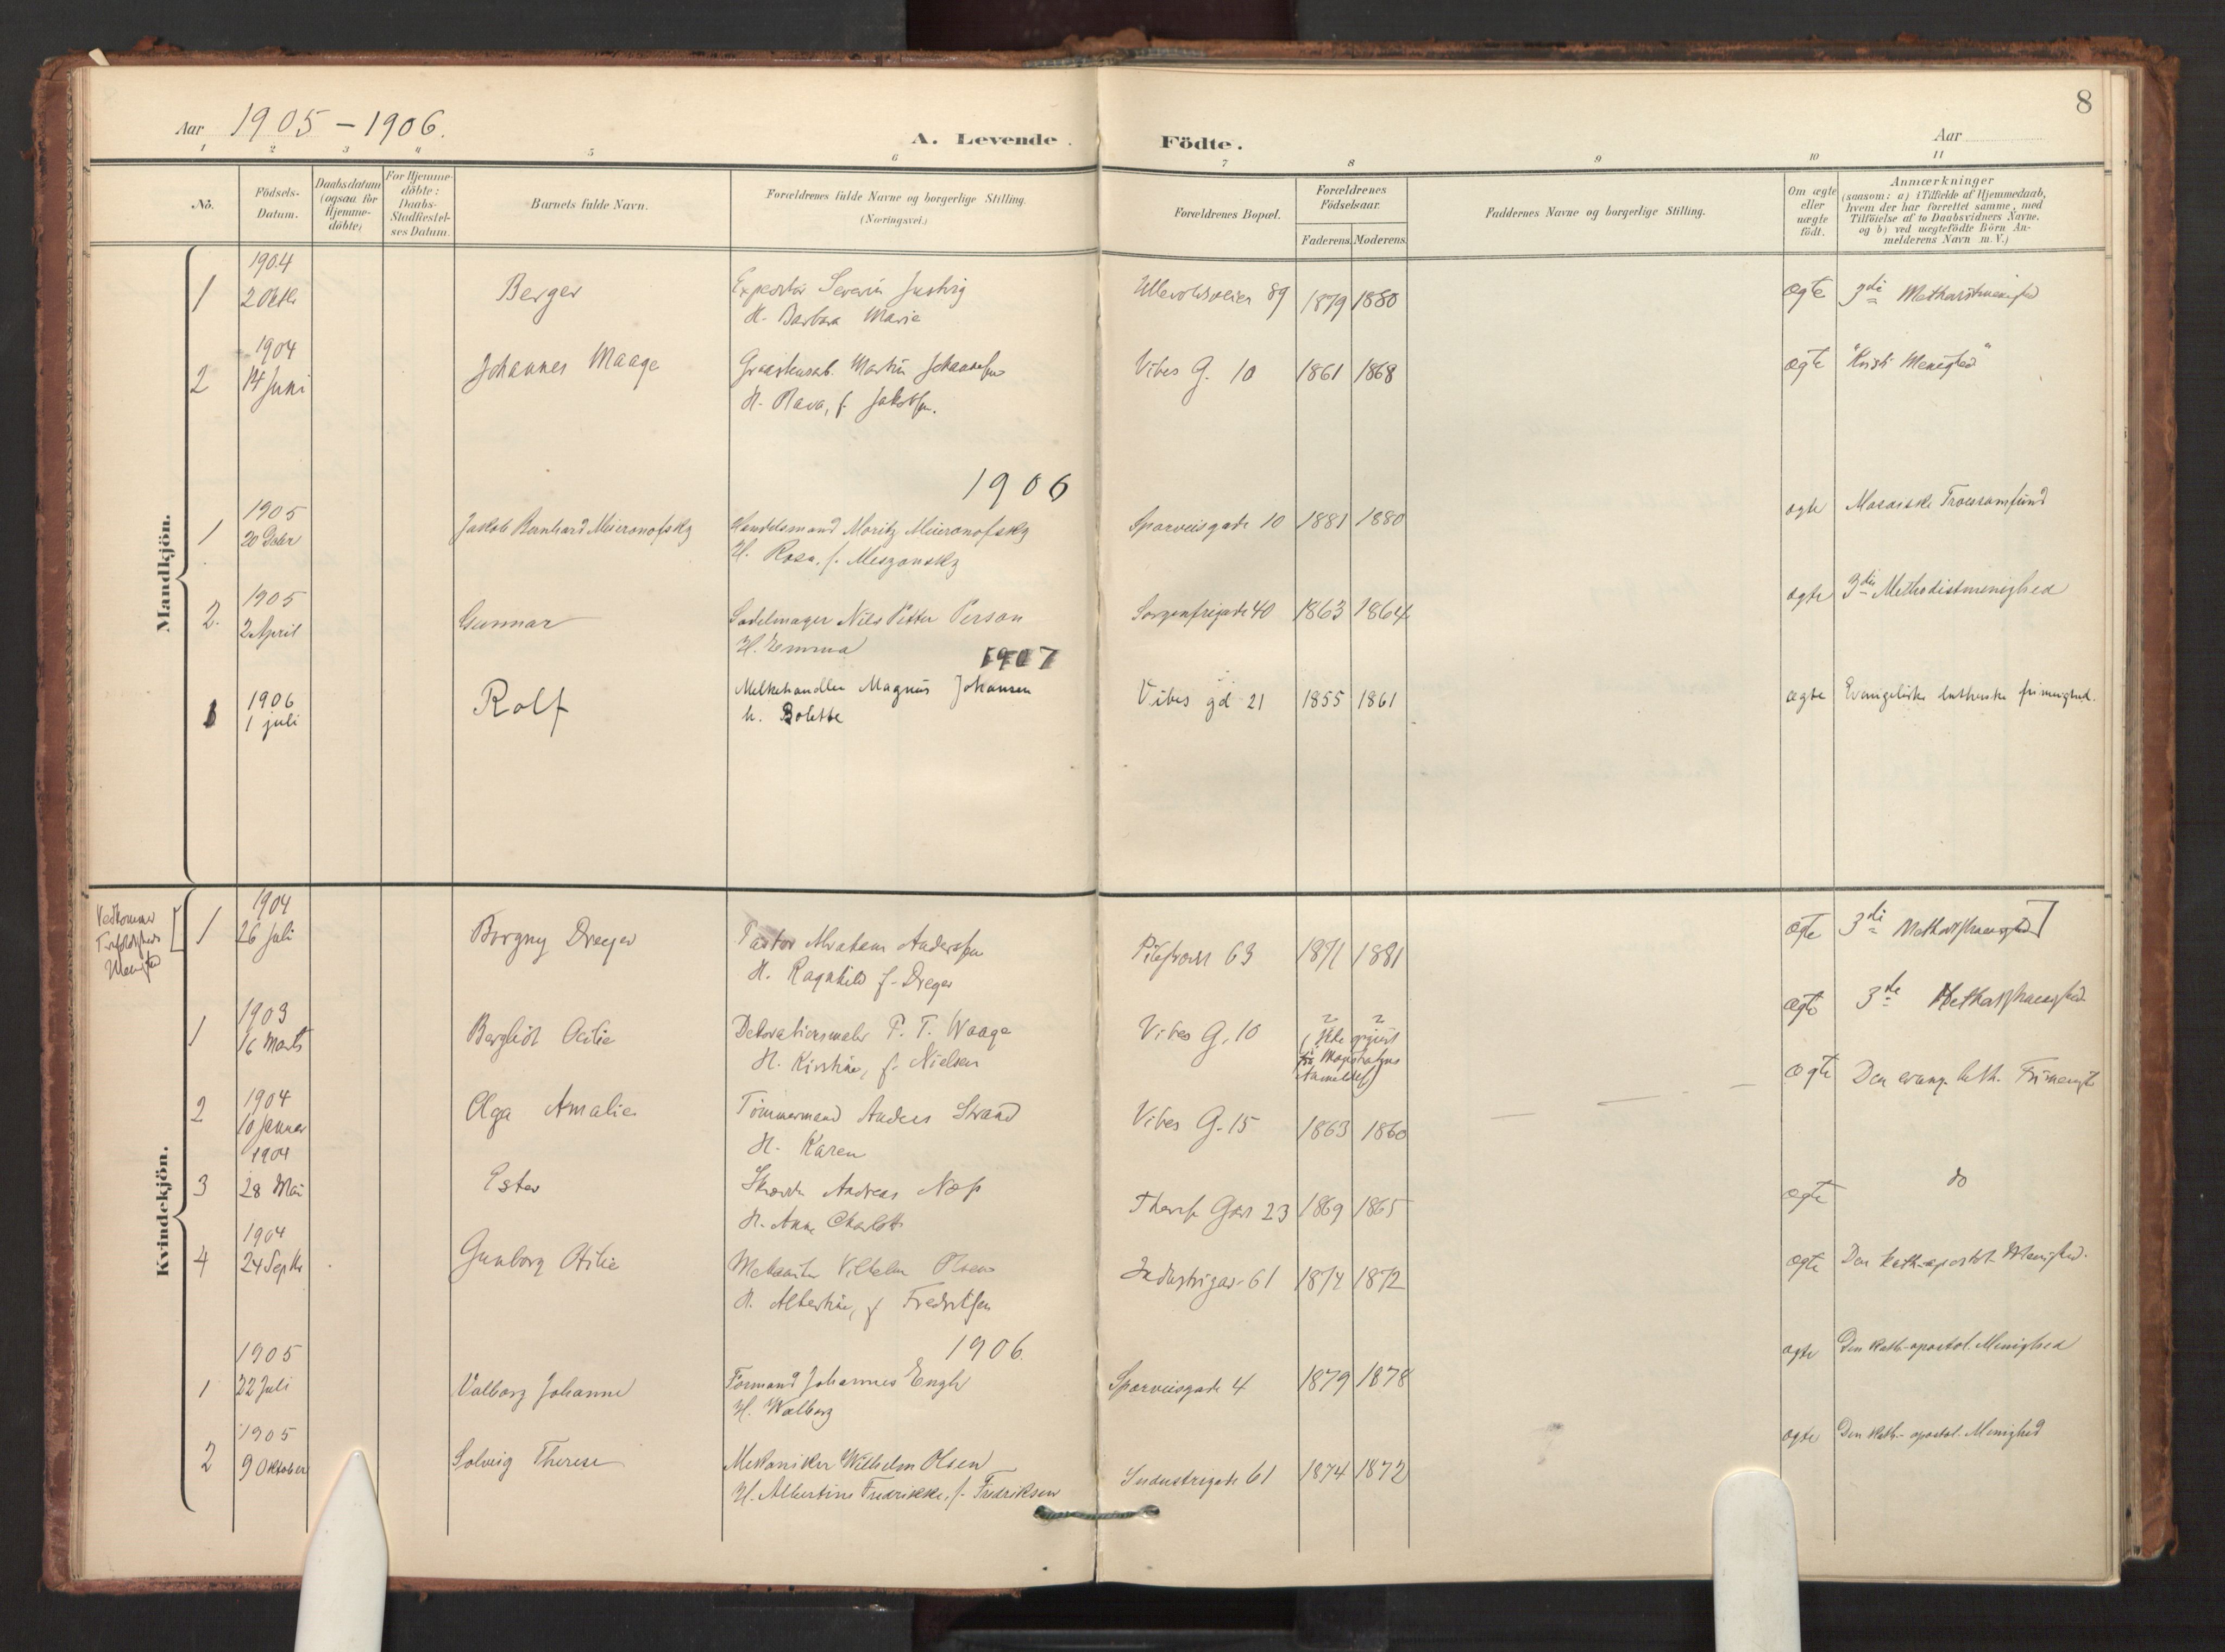 8
Aar 1905 - 1906.
A. Levende Födte.
Aar
1 2 3 4 5 6 7 8 9 10 11
No. Födsels-Datum. Daabsdatum (ogsaa for Hjemme-döbte) For Hjemme-döbte: Daabs-Stadfæstel-ses Datum. Barnets fulde Navn. Forældrenes fulde Navne og borgerlige Stilling. (Næringsvei.) Forældrenes Bopæl. Forældrenes Födselsaar. Faderens. Moderens. Faddernes Navne og borgerlige Stilling. Om ægte eller uægte födt. Anmærkninger (saasom: a) i Tilfælde af Hjemmedaab, hvem der har forrettet samme, med Tilföielse af to Daabsvidners Navne. og b) ved uægtefödte Börn An-melderens Navn m. V.)
Mandkjön.
1904
1 2 Berger Severin Ullevoldsveien 89 1879 1880 ægte 3die
H. Barbara Marie
1904
2 14 Juni Johannes Maage Martin Vibes G. 10 1861 1868 ægte "Kristi Menighed"
H.
1906
1905
1 20 Jakob Bernhard Meieronofsky Handelsmand Moritz Meieronofsky Sporveisgade 10 1881 1880 ægte Mosaiske Troessamfund
H. Rosa, f. Meszansky
1905
2. 2 April Gunnar Sadelmager Nils Petter Person Sorgenfrigade 40 1863 1864 ægte 3die Methodistmenighed
H. Emma
1907
1906
1 1 juli Rolf Melkehandler Magnus Johansen Vibes gd 21 1855 1861 ægte Evangeliske lutherske frimenighed.
h. Bolette
Kvindekjön.
Vedkommer
Menighed
1904
1 26 Juli Borgny Dreyer Pastor Abraham Anderssen 63 1871 1881 ægte 3die
H. Ragnhild f. Dreyer
1903
1 16 Marts Bergliot Otilie Dekorationsmaler P. T. Waage Vibes G. 10 ? ? ægte 3die
H. Kirstine, f. Nielsen
(Ikke opgivet
Magistratens
Anmeldelse)
1904
2 10 Januar Olga Amalie Tømmermand Anders Strand Vibes G. 15 1863 1860 ægte Den evang. luth. Frimenigh
H. Karen
1904
3 28 Mai Ester Andreas Næss 23 1869 1865 ægte do
H. Anne Charlotte
1904
4 24 Septbr Gunborg Otilie Mekaniker Vilhelm Olsen Industrigad. 61 1874 1872 ægte Den kath-apostol. Menighed.
H. Albertine, f. Fredriksen
1906.
1905
1 22 Juli Valborg Johanne Formand Johannes Engh Sporveisgade 4 1879 1878 ægte Den kath-apostol. Menighed
H. Walborg
1905
2 9 Oktober Solveig Therese Mekaniker Wilhelm Olsen Industrigade 61 1874 1872 ægte Den kath.- apostol. Menighed
H. Albertine Fredrikke, f. Fredriksen